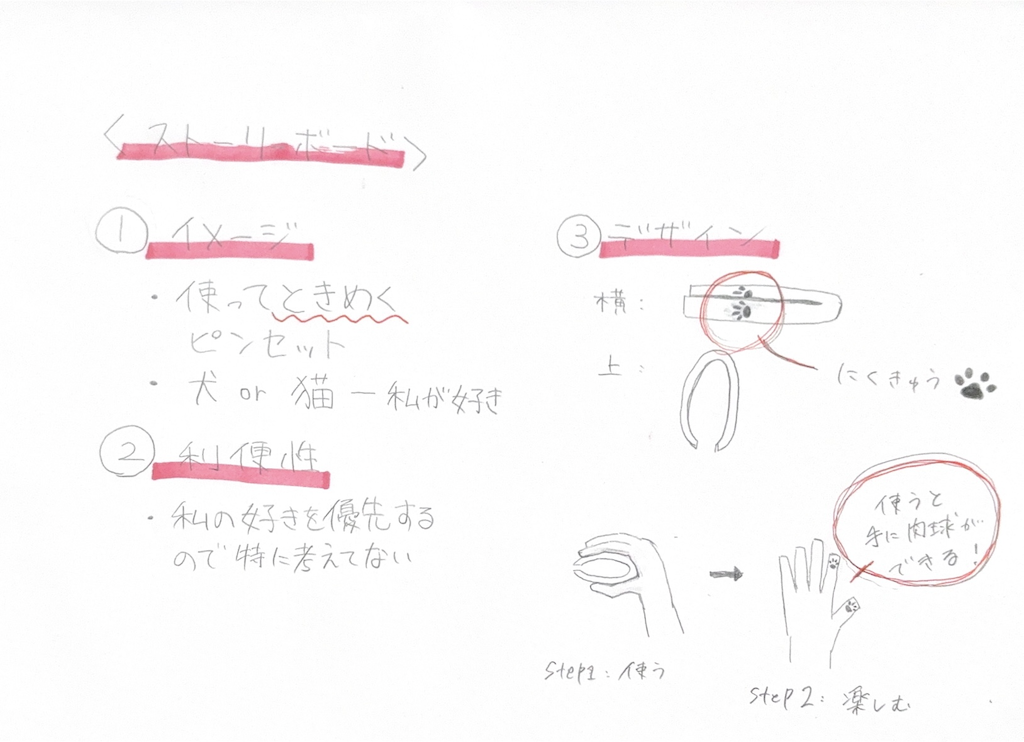 〈ストーリーボード〉
① イメージ
・使ってときめく
ピンセット
・犬 or 猫 ー 私が好き
② 利便性
・私の好きを優先する
ので特に考えてない
③ デザイン
横:
上:
にくきゅう
使うと
手に肉球が
できる!
Step1: 使う
Step2: 楽しむ